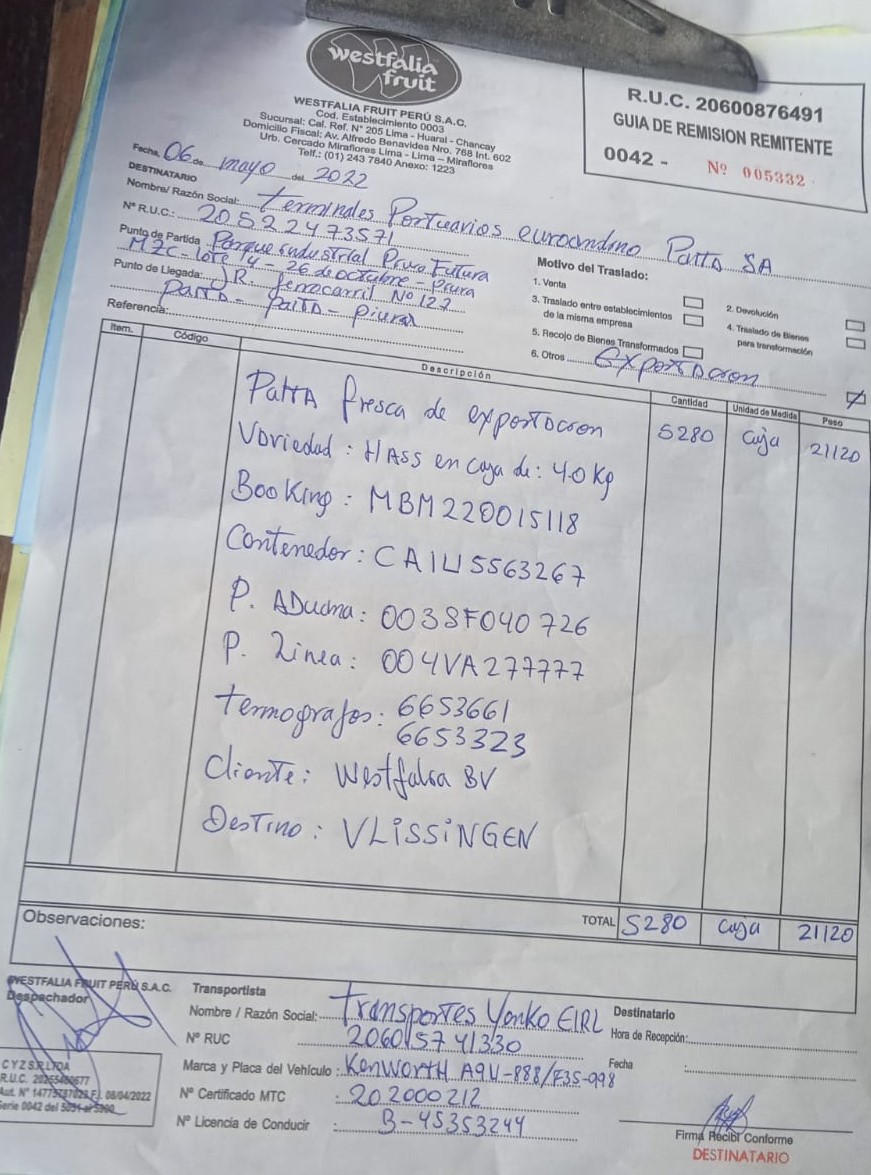 westfalia
fruit
WESTFALIA FRUIT PERÚ S.A.C.
Cod. Establecimiento 0003
Sucursal: Cal. Ref. N° 205 Lima - Huaral - Chancay
Domicilio Fiscal: Av. Alfredo Benavides Nro. 768 Int. 602
Urb. Cercado Miraflores Lima - Lima - Miraflores
Telf.: (01) 243 7840 Anexo: 1223
R.U.C. 20600876491
GUIA DE REMISION REMITENTE
0042 - Nº 005332
Fecha, 06 de mayo del 2022
DESTINATARIO
Nombre/ Razón Social: Terminales Portuarios euroandino Paita SA
N° R.U.C.: 20522473571
Punto de Partida Parque industrial Piura Futura
MZC - Lote 14 - 26 de octubre - Piura
Punto de Llegada: JR. ferrocarril N° 127
Paita - Paita - Piura
Referencia:
Motivo del Traslado:
1. Venta
2. Devolución
3. Traslado entre establecimientos
de la misma empresa
4. Traslado de Bienes
para transformación
5. Recojo de Bienes Transformados
6. Otros Exportacion
Item. Código Descripción Cantidad Unidad de Medida Peso
Palta fresca de exportacion 5280 Caja 21120
Variedad: HASS en caja de: 4.0 Kg
Booking: MBM220015118
Contenedor: CAIU5563267
P. Aduana: 0038F040726
P. Linea: 004VA277777
Termografos: 6653661
6653323
Cliente: Westfalia BV
Destino: VLISSINGEN
TOTAL 5280 Caja 21120
Observaciones:
WESTFALIA FRUIT PERÚ S.A.C.
Despachador
Transportista
Nombre / Razón Social: Transportes Yonko EIRL
N° RUC 20601574 1330
Marca y Placa del Vehículo: Kenworth A9U-888/F3S-998
N° Certificado MTC : 202000212
N° Licencia de Conducir : B-45353244
Destinatario
Hora de Recepción:
Fecha :
Firma Recibí Conforme
DESTINATARIO
CYZ S.R.LTDA
R.U.C.
Aut. N° F.I. 08/04/2022
Serie 0042 del